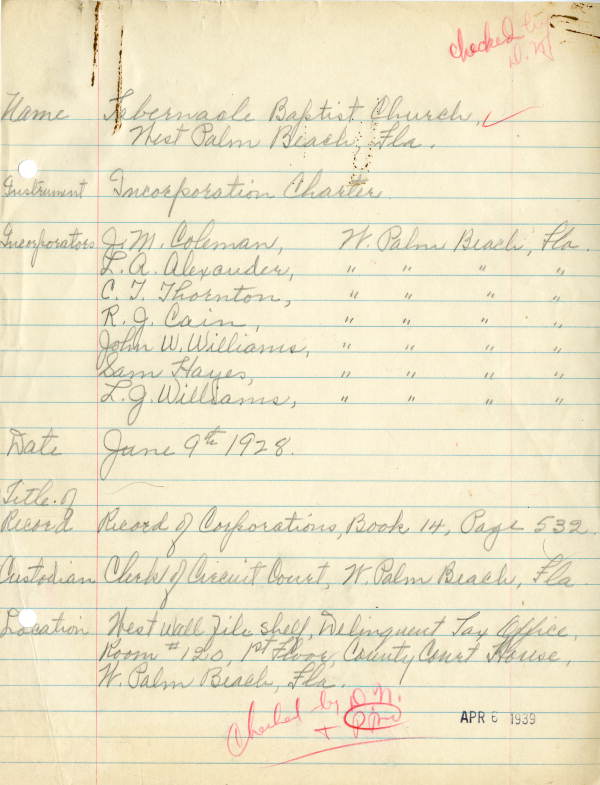 checked by
D. N.
Name Tabernacle Baptist Church,
West Palm Beach, Fla.
Instrument Incorporation Charter
Incorporators J. M. Coleman, W. Palm Beach, Fla.
L. A. Alexander, " " " "
C. T. Thornton, " " " "
R. J. Cain, " " " "
John W. Williams, " " " "
Sam Hayes, " " " "
L. J. Williams, " " " "
Date June 9th 1928.
Title of
Record Record of Corporations, Book 14, Page 532
Custodian Clerk of Circuit Court, W. Palm Beach, Fla
Location West Wall File Shelf, Delinquent Tax Office,
Room #120, 1st Floor, County Court House,
W. Palm Beach, Fla.
Checked by D. N.
+
APR 6 1939